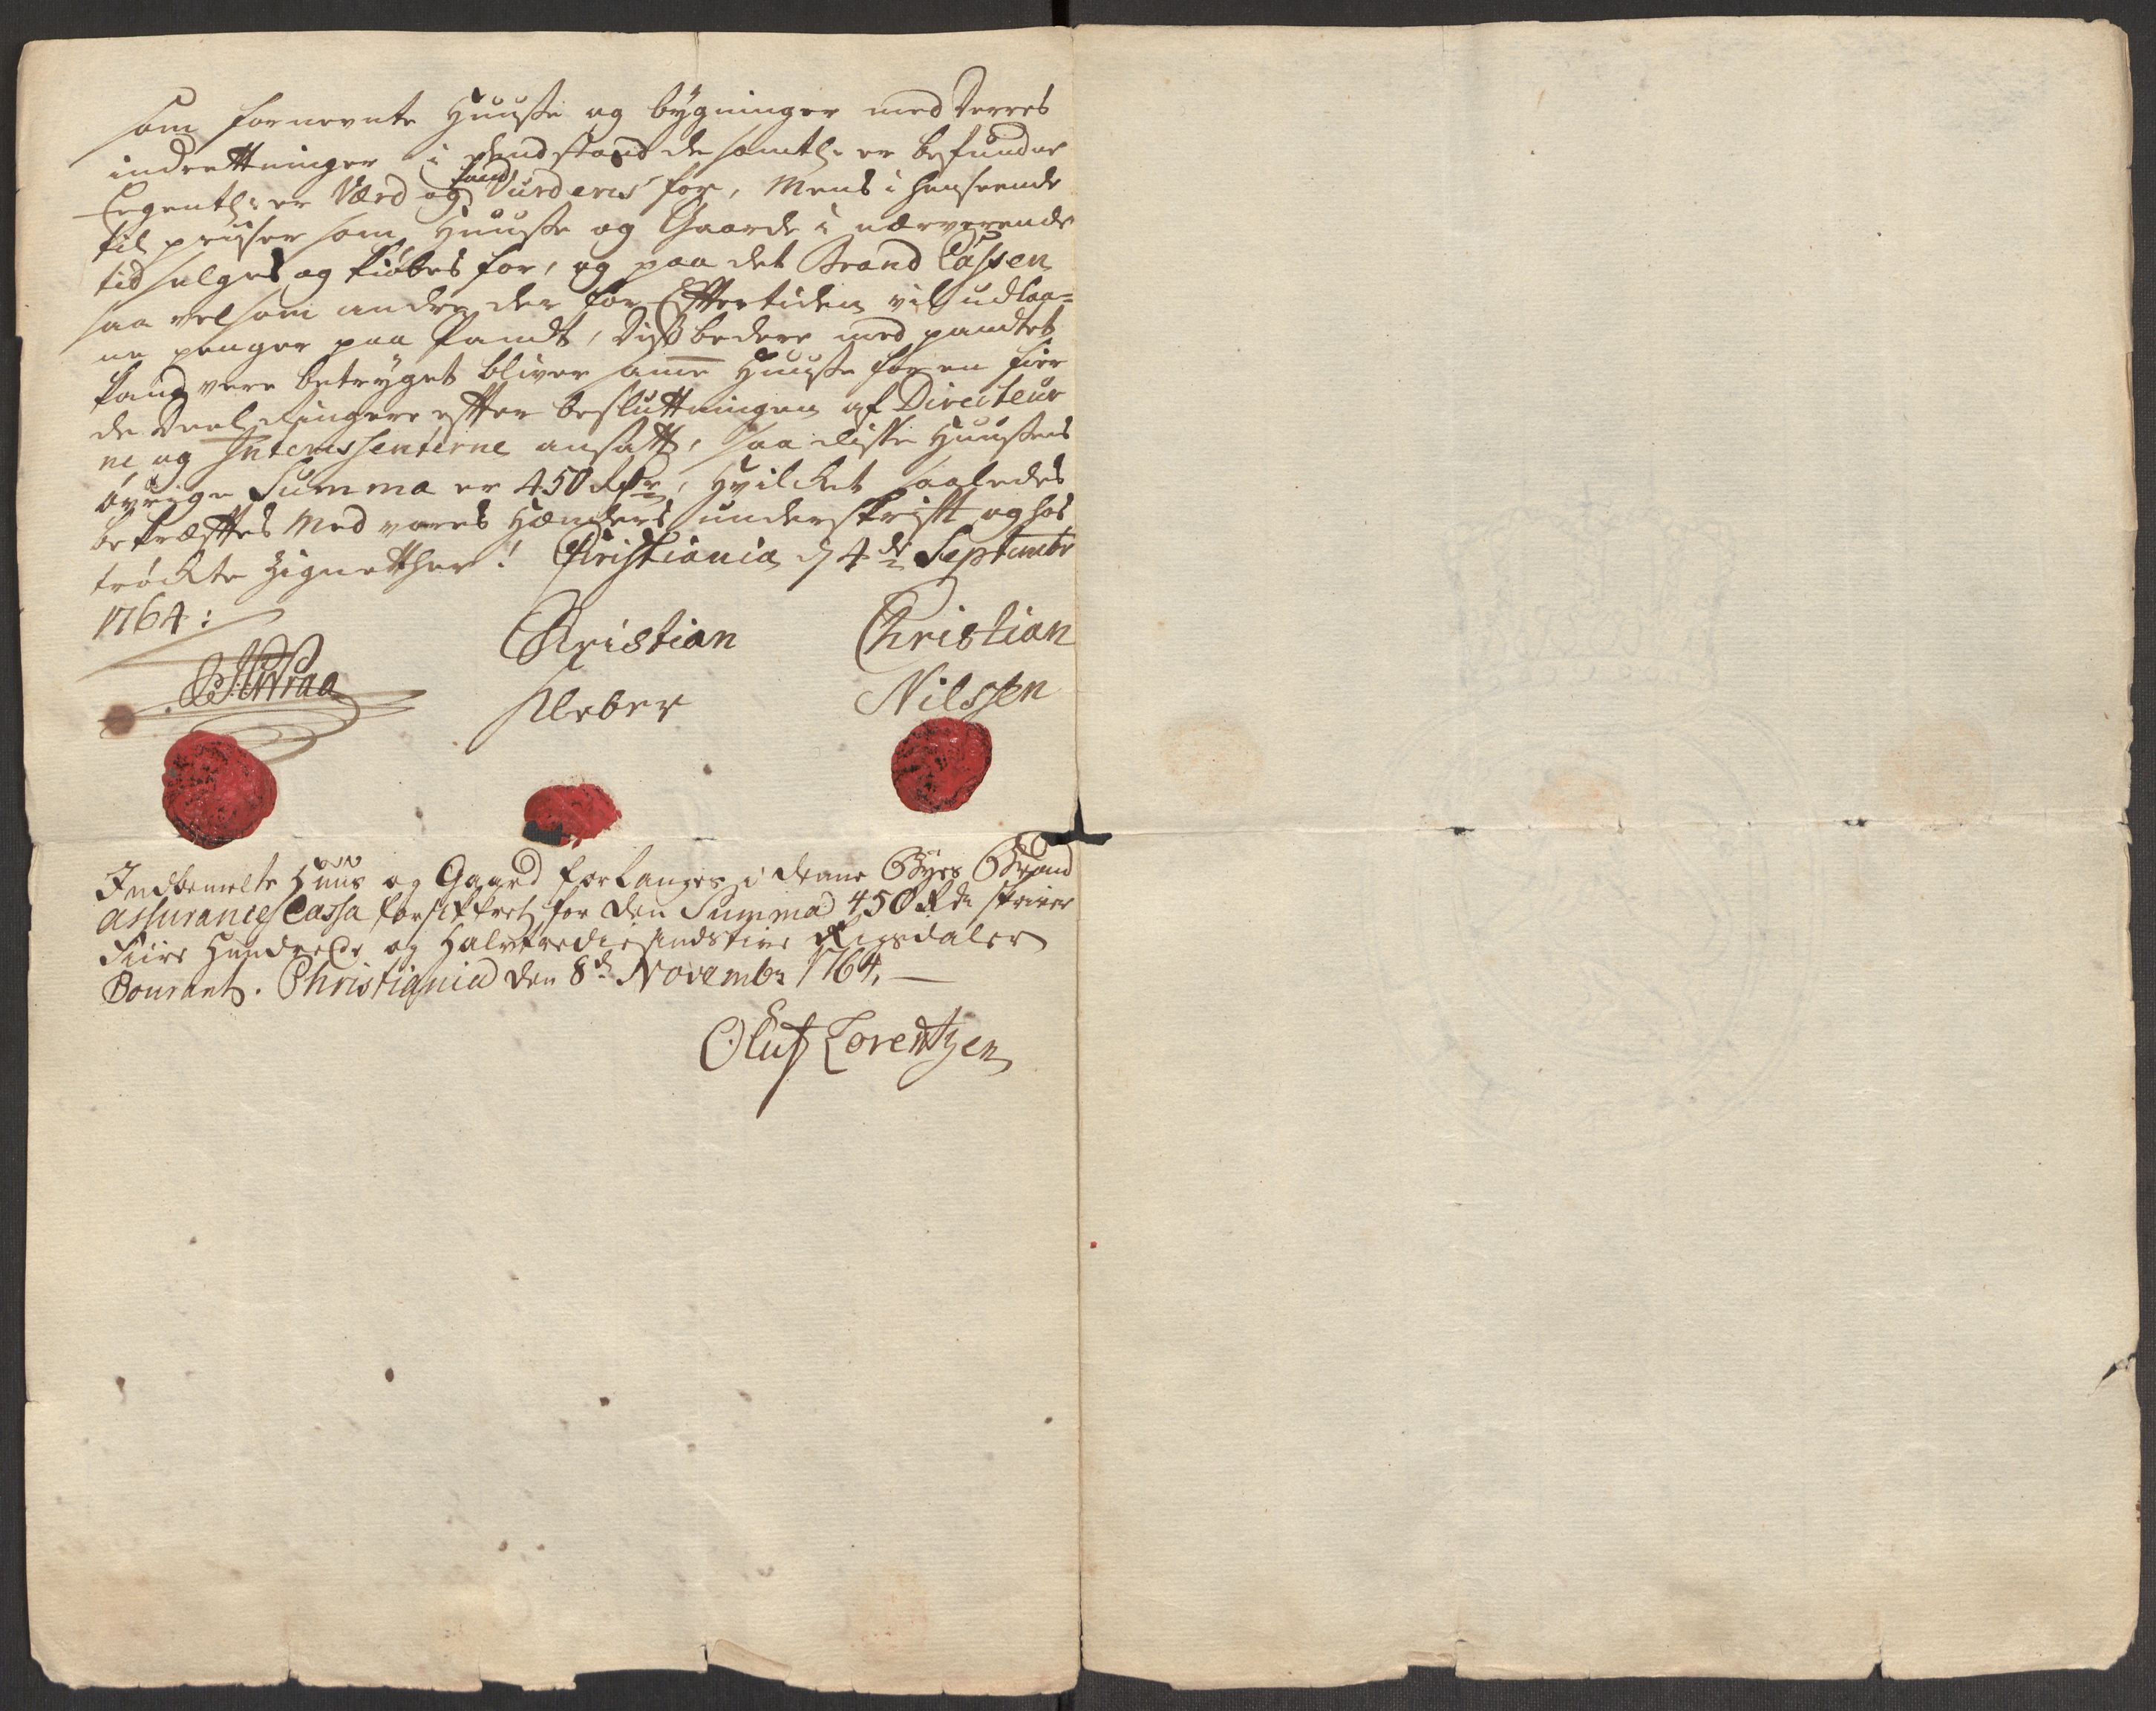 som fornevnte Huuse og bygninger med derres
indrettninger i dend stand de samtl: er befundne
Eegentl: er Værd og kand Vurderes for, Mens i henseende
til priser som Huuse og Gaarde i nærverende
tid selges og kiøbes for, og paa det Brand Cassen
saa vel som andre der for Efftertiden vil udlaa-
ne penger paa Pandt, diss bedere med pandtet
kand vere betrygget bliver same Huuse for en fier
de deel Ringere effter besluttningen af Directeur
ne og Interessenterne ansatt, saa disse Huusers
øvrige Summa er 450 Rdr, Hvilcket saaledes
bekræfftes med vores Hænders underskrifft og hos
tröckte Zignetther! Christiania d 4de Septembr
1764:
Christian Christian
Kleber Nilssen
Indbemelte Huus og Gaard forlanges i denne Byes Brand
assurance Cassa forsikkret for den Summa 450 Rdr skriver
Fiire Hundrede og Halvtrediesindstive Rigsdaler
Courant. Christiania den 8de Novembr 1764.
Oluf Lorentzen